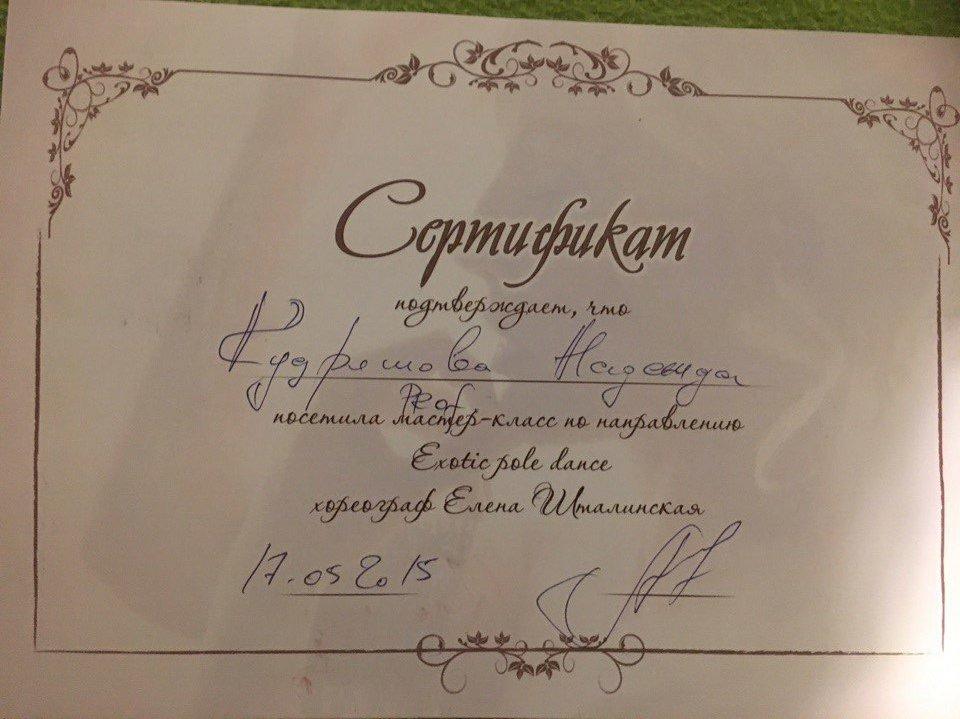 Сертификат
подтверждает, что
Кудряшова Надежда
Prof
посетила мастер-класс по направлению
Exotic pole dance
хореограф Елена Шталинская
17.05 2015